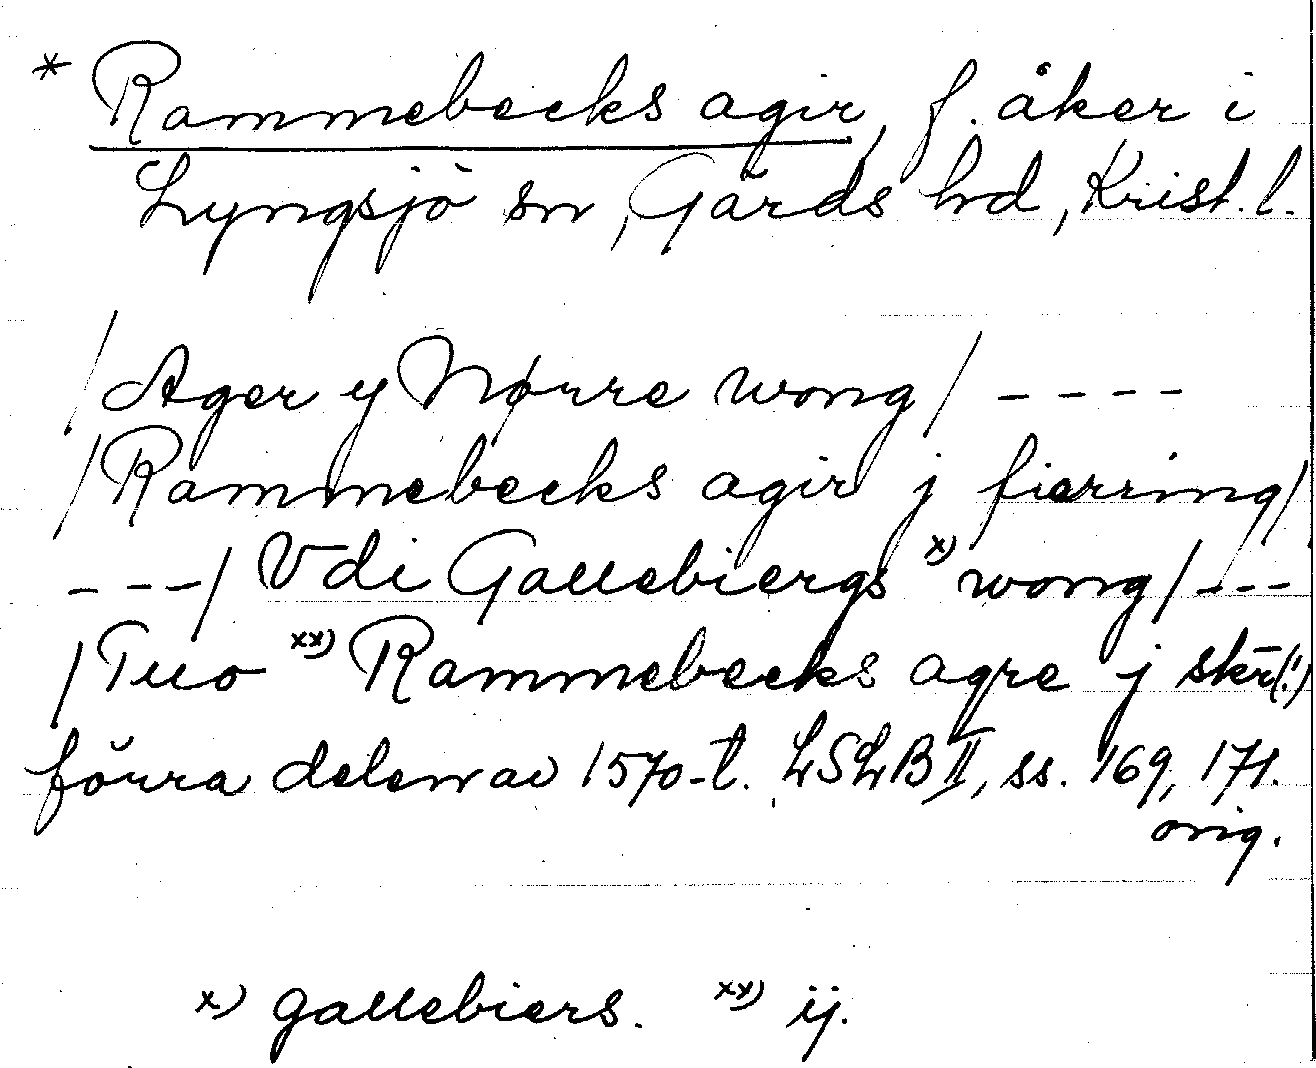 * Rammebecks agir, f. åker i
Lyngsjö sn, Gärds hd, Krist. l.
/Ager y Nørre wong/ ----
/Rammebecks agir j fierring/
---/ Vdi Gallebiergs x) wong/---
/Tuo xx) Rammebecks agre j skē(!)
förra delen av 1570-t. LSLB II, ss. 169, 171.
orig.
x) gallebiers. xx) ij.